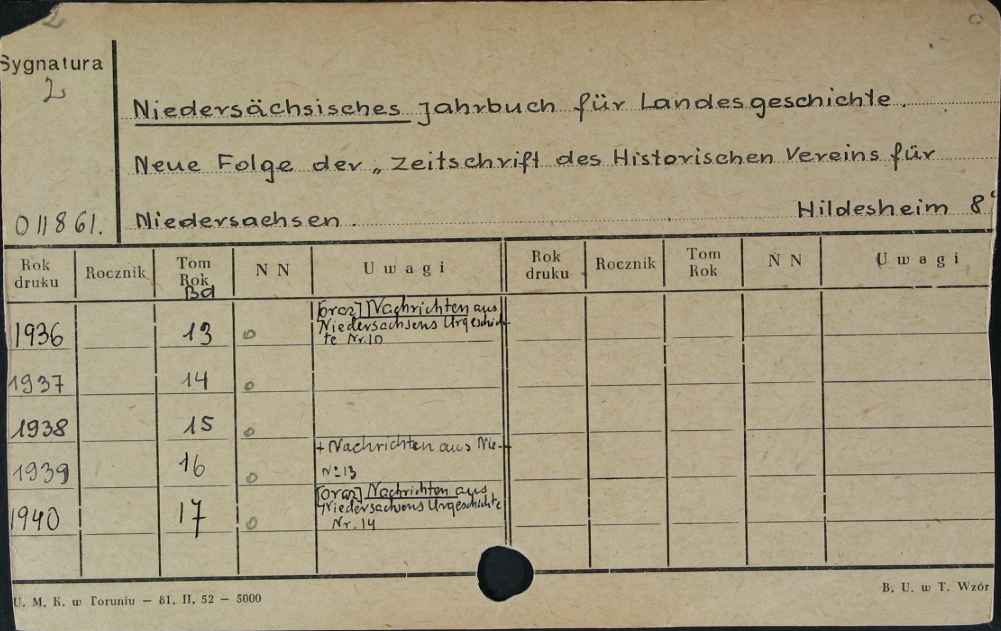 2
Sygnatura
2
011861.
Niedersächsisches Jahrbuch für Landesgeschichte.
Neue Folge der „Zeitschrift des Historischen Vereins für
Niedersachsen. Hildesheim 8°
Rok druku Rocznik Tom Rok N N Uwagi Rok druku Rocznik Tom Rok N N Uwagi
Bd
1936 13 o [oraz] Nachrichten aus
Niedersachsens Urgeschich-
te Nr. 10
1937 14 o
1938 15 o
+ Nachrichten aus Nie-
1939 16 o № 13
[oraz] Nachrichten aus
Niedersachsens Urgeschichte
1940 17 o Nr. 14
U. M. K. w Toruniu — 81. II. 52 — 5000
B. U. w T. Wzór